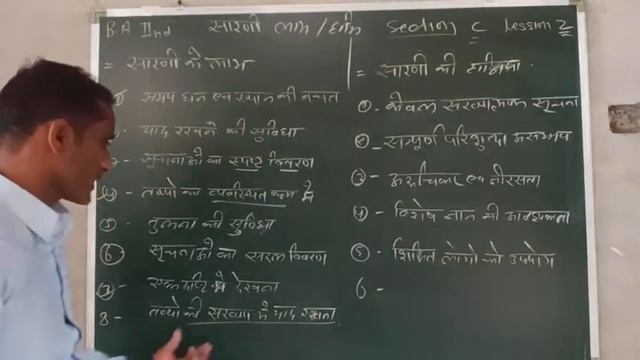 B.A IInd सारणी लाभ / हानि Section C Lesson 2
= सारणी के लाभ
① समय धन एवं स्थान की बचत
याद रखने की सुविधा
सूचनाओं का स्पष्ट विवरण
④ तथ्यों का व्यवस्थित क्रम में
⑤ तुलना की सुविधा
⑥ सूचनाओं का सरल विवरण
⑦ - एक दृष्टि में देखना
8 - तथ्यों को सरलता से याद रखना
= सारणी की हानियां
① - केवल संख्यात्मक सूचना
② सम्पूर्ण परिशुद्धता असम्भव
③ - अरुचिकर एवं नीरसता
④ - विशेष ज्ञान की आवश्यकता
⑤ - शिक्षित लोगों को उपयोग
6 -